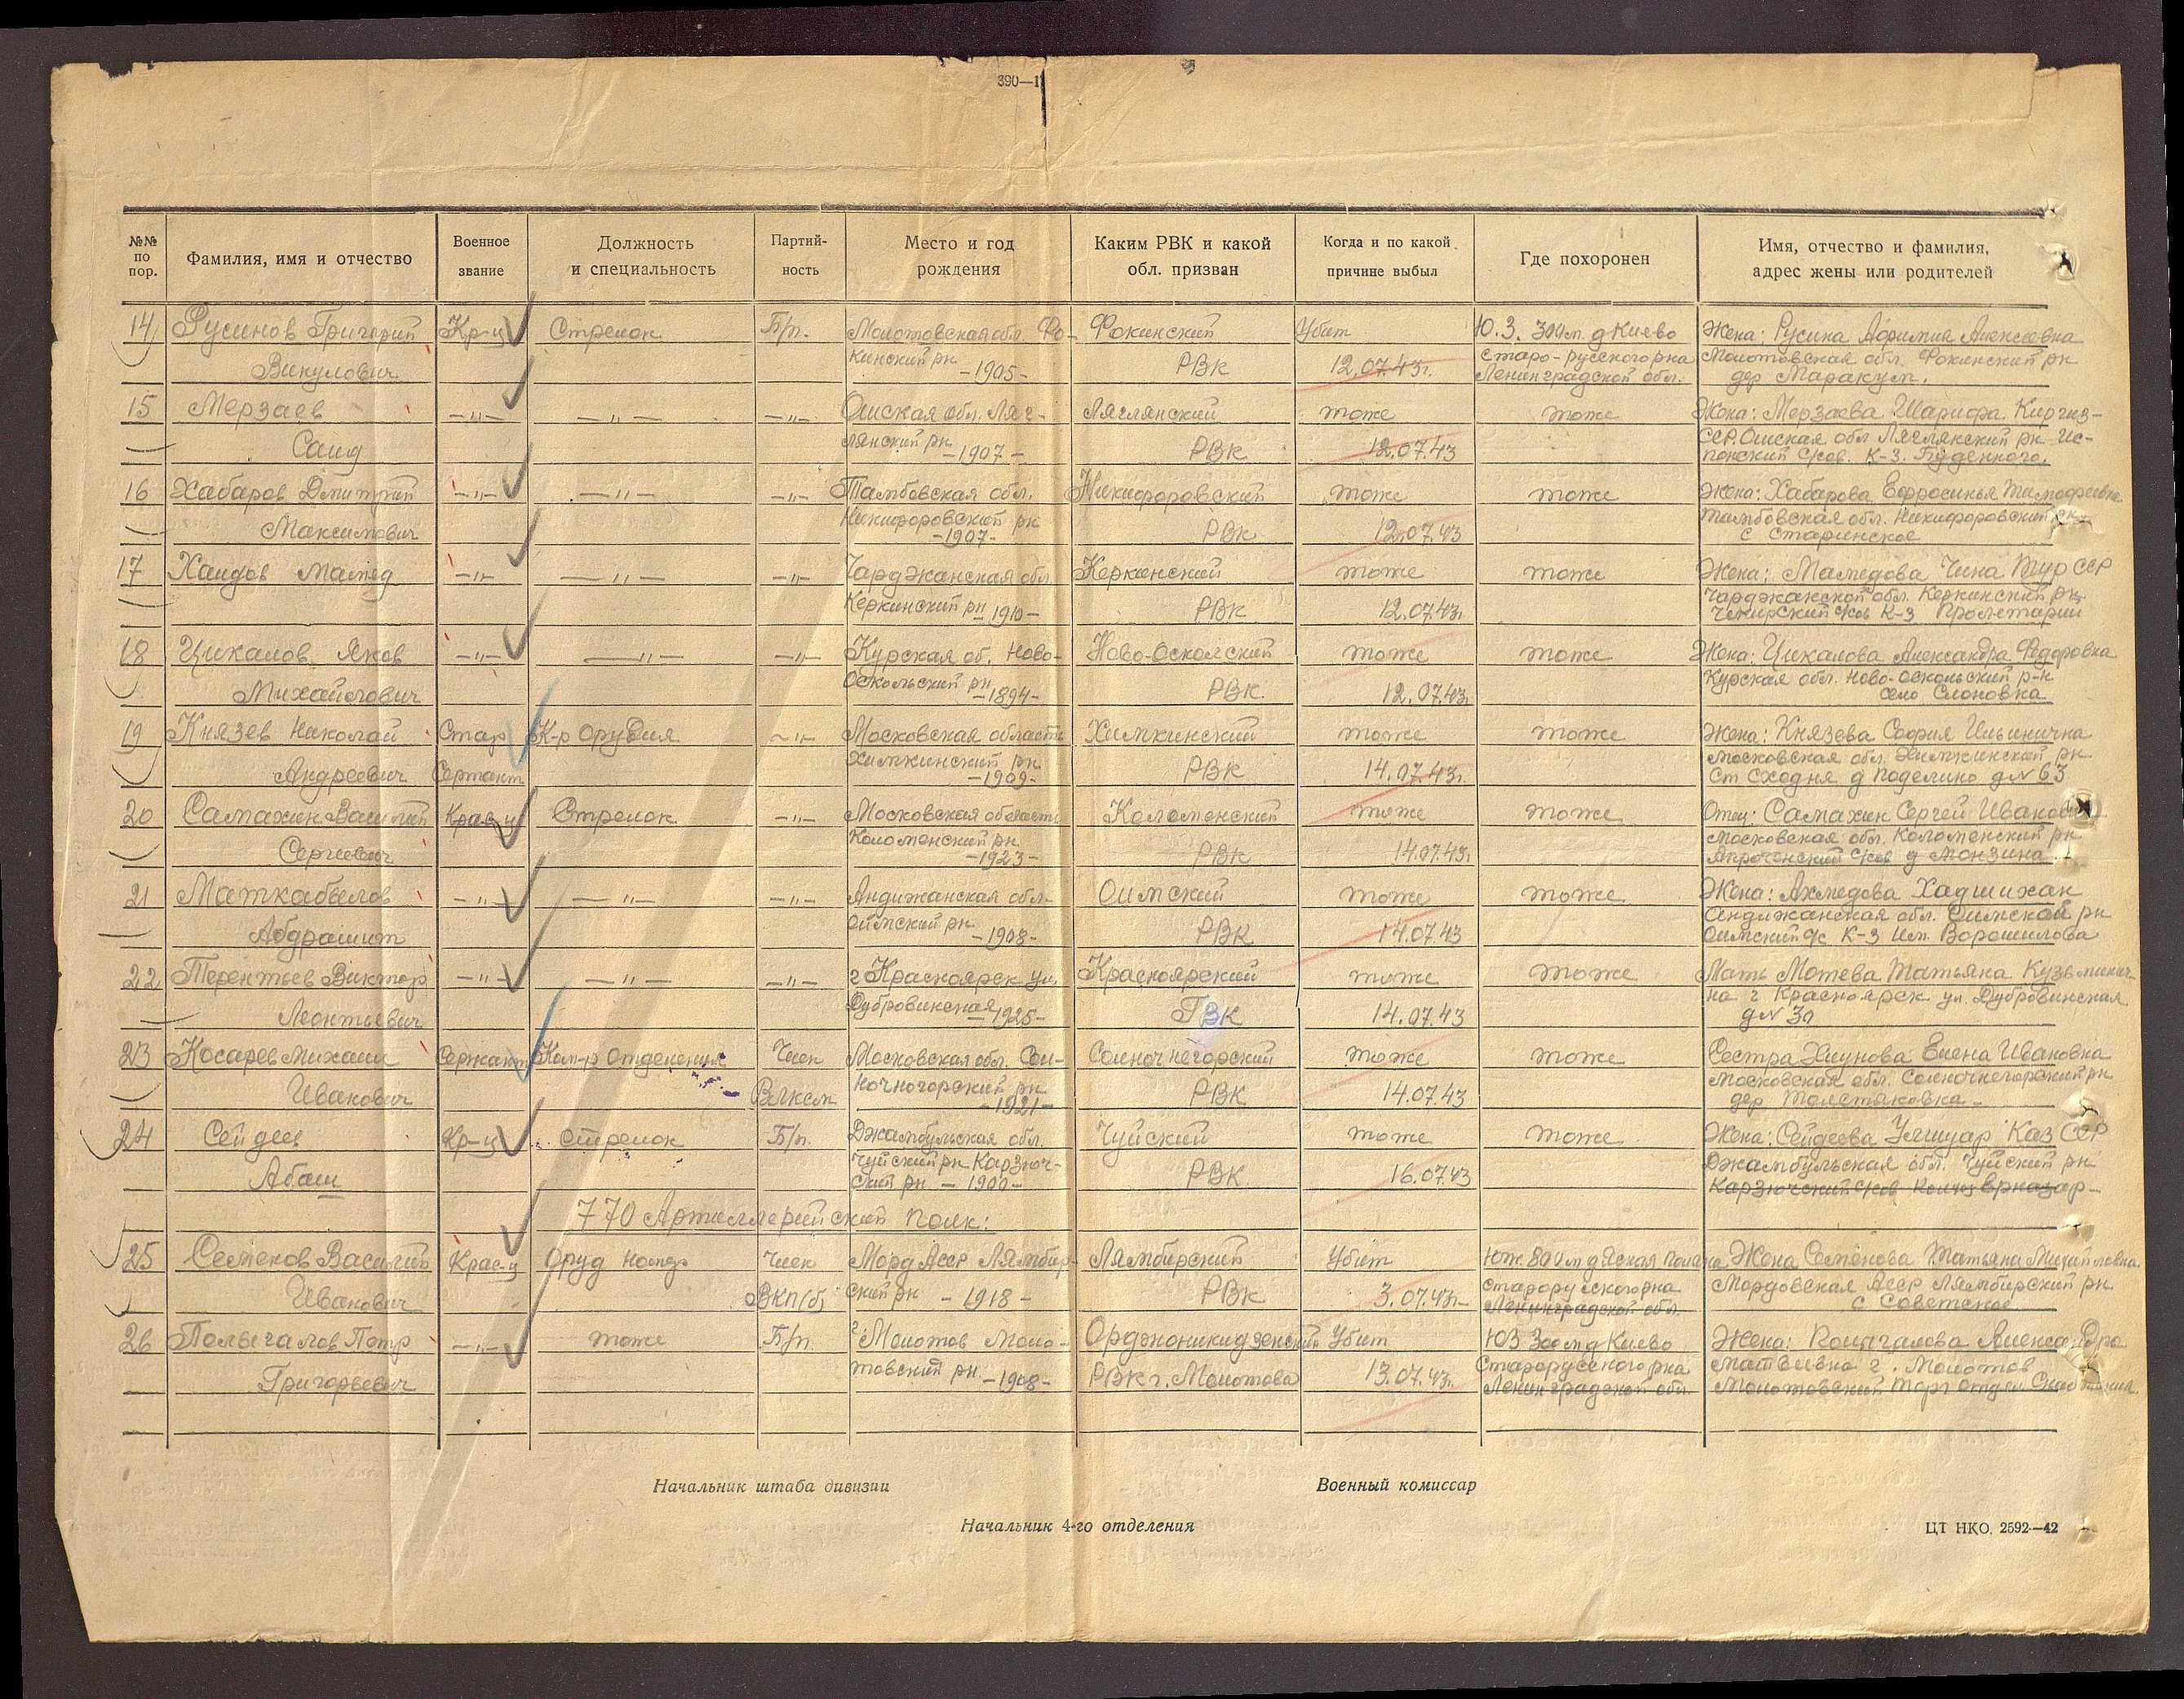 390—1
№№ по пор. Фамилия, имя и отчество Военное звание Должность и специальность Партий-ность Место и год рождения Каким РВК и какой обл. призван Когда и по какой причине выбыл Где похоронен Имя, отчество и фамилия, адрес жены или родителей
14 Русинов Григорий Кр-ц Стрелок Б/п. Молотовская обл. Фо- Фокинский Убит Ю.З. 300 м. д Киево Жена: Русина Алексеевна
Викулович кинский рн -1905- РВК 12.07.43г. Старо-русского рна Молотовская обл. Фокинский рн
Ленинградской обл. дер Маракуш.
15 Мерзаев —„— —„— —„— Ошская обл. Ляг- Ляглянский тоже тоже Жена: Мерзаева Шарифа Киргиз-
Саид лянский рн -1907- РВК 12.07.43 ССР. Ошская обл Ляглякский рн Ис-
с/сов. К-З. Буденного.
16 Хабаров Дмитрий —„— —„— —„— Тамбовская обл. Никифоровский тоже тоже Жена: Хабарова Ефросинья Тимофеевна
Максимович Никифоровский рн РВК 12.07.43 Тамбовская обл. Никифоровский рн
-1907- с Старинское
17 Хаидов Мамед —„— —„— —„— Чарджанская обл Керкинский тоже тоже Жена: Мамедова Чина Тур ССР
Керкинский рн 1910- РВК 12.07.43г. Чарджанской обл. Керкинский рн
с/сов К-З Пролетарий
18 Цикалов Яков —„— —„— —„— Курская об. Ново- Ново-Оскольский тоже тоже Жена: Цикалова Александра Федоровна
Михайлович Оскольский рн -1894- РВК 12.07.43г. Курская обл. Ново-Оскольский р-н
село Слоновка
19 Князев Николай Стар К-р Орудия —„— Московская область Химкинский тоже тоже Жена: Князева София Ильинична
Андреевич Сержант Химкинский рн РВК 14.07.43г. Московская обл. Химкинский рн
-1909- Ст Сходня д Поделино д № 63
20 Самахин Василий Крас-ц Стрелок —„— Московская область Коломенский тоже тоже Отец: Самахин Сергей Иванович
Сергеевич Коломенский рн РВК 14.07.43г. Московская обл. Коломенский рн
-1923- с/сов д Монзина
21 Маткабылов —„— —„— —„— Андижанская обл- Оимский тоже тоже Жена: Ахмедова Хадшихан
Абдрашит Оимский рн -1908- РВК 14.07.43 Андижанская обл. Оимский рн
Оимский с/с К-З Им. Ворошилова
22 Терентьев Виктор —„— —„— —„— г Красноярск ул. Красноярский тоже тоже Мать Мотева Татьяна Кузьминич-
Леонтьевич Дубровинская 1925- ГВК 14.07.43 на г Красноярск ул Дубровинская
д № 30
23 Косарев Михаил Сержант Ком-р Отделения Член Московская обл. Сол- Солнечногорский тоже тоже Сестра Елена Ивановна
Иванович Влксм ночногорский рн РВК 14.07.43 Московская обл. Солнечнегорский рн
-1921- дер Толстяковка
24 Сейдеев Кр-ц Стрелок Б/п. Джамбульская обл. Чуйский тоже тоже Жена: Сейдеева Каз ССР
Абаш Чуйский рн Карзюч- РВК 16.07.43 Джамбульская обл. Чуйский рн
ский рн - 1900- Карзючский с/сов Колхоз Ерназар-
770 Артиллерийский полк:
25 Семенов Василий Крас-ц Оруд Номер Член Морд Асср Лямбир- Лямбирский Убит Юж. 800 м д Ясная Поляна Жена Семёнова Татьяна Михайловна
Иванович ВКП(б) ский рн - 1918 - РВК 3.07.43г. Старорусского рна Мордовская Асср Лямбирский рн
Ленинградской обл. с Советское
26 Полыгалов Пётр —„— тоже Б/п. г Молотов Моло- Орджоникидзенский Убит ЮЗ 300 м д Киево Жена: Александра
Григорьевич товский рн. -1908- РВК г. Молотова 13.07.43г. Старорусского рна Матвеевна г. Молотов
Ленинградской обл. Молотовский Торг Отдел Снабжения.
Начальник штаба дивизии Военный комиссар
Начальник 4-го отделения ЦТ НКО. 2592—42